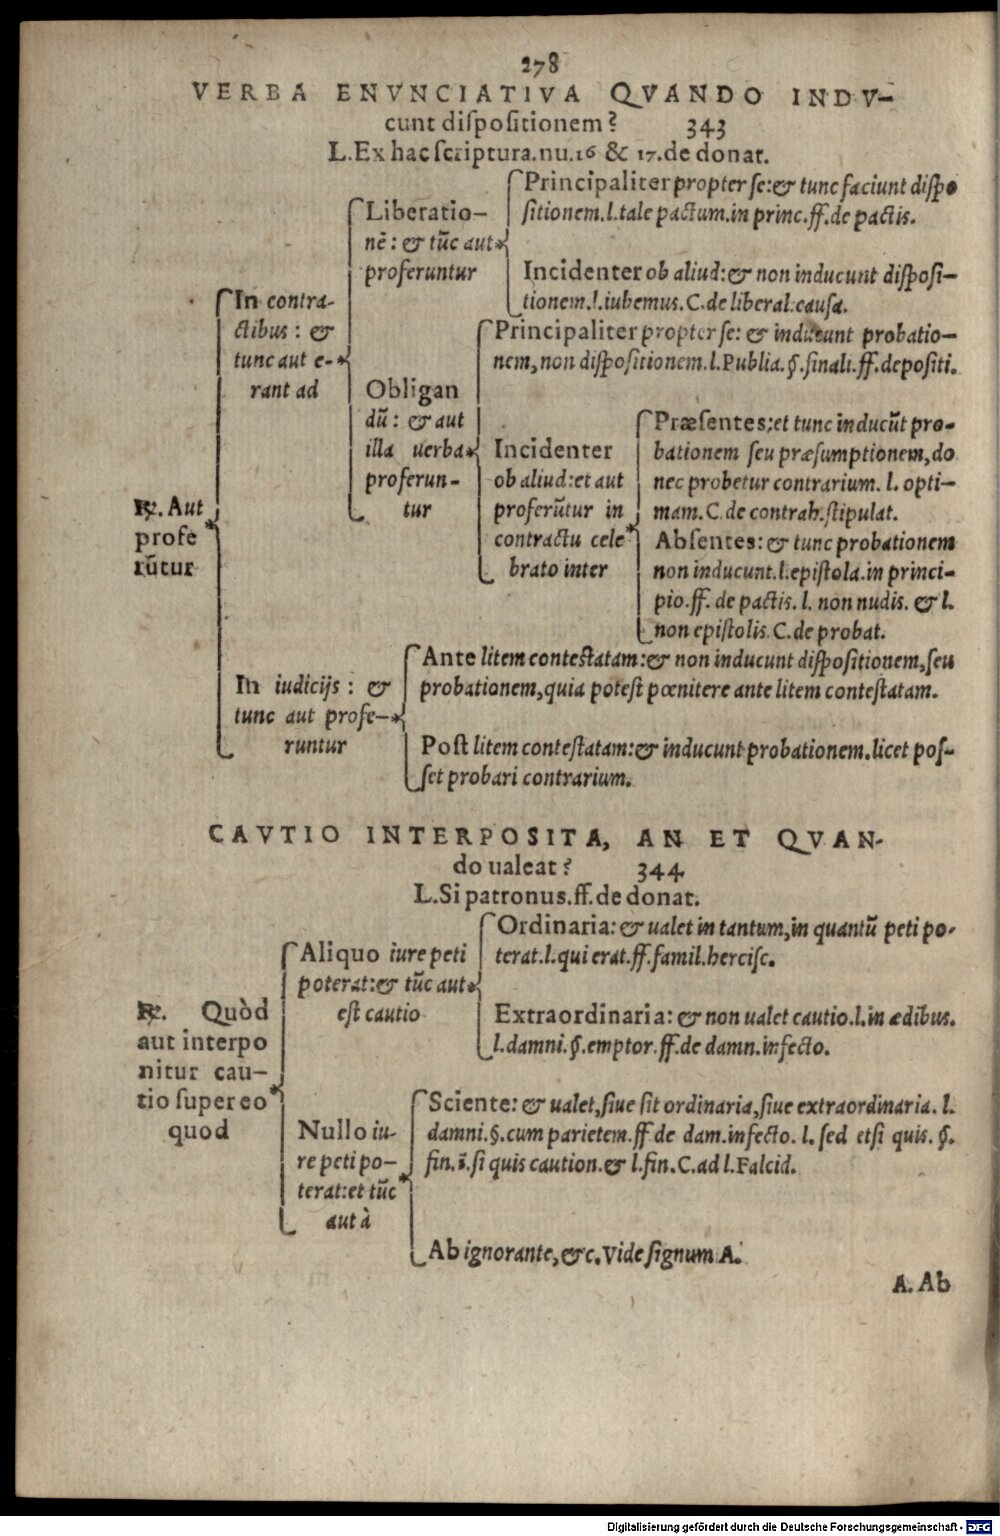 278
VERBA ENVNCIATIVA QVANDO INDV-
cunt dispositionem? 343
L.Ex hac scriptura.nu.16 & 17.de donat.
℞. Aut
profe
rūtur
In contra-
ctibus : &
tunc aut e-
rant ad
Liberatio-
nē : & tūc aut
proferuntur
Principaliter propter se:& tunc faciunt dispo
sitionem.l.tale pactum.in princ.ff.de pactis.
Incidenter ob aliud:& non inducunt disposi-
tionem.l.iubemus.C.de liberal.causa.
Obligan
dū : & aut
illa uerba
proferun-
tur
Principaliter propter se: & inducunt probatio-
nem,non dispositionem.l.Publia.§.finali.ff.depositi.
Incidenter
ob aliud:et aut
proferūtur in
contractu cele
brato inter
Præsentes:et tunc inducūt pro-
bationem seu præsumptionem,do
nec probetur contrarium. l. opti-
mam.C.de contrah.stipulat.
Absentes:& tunc probationem
non inducunt.l.epistola.in princi-
pio.ff. de pactis. l. non nudis. & l.
non epistolis.C.de probat.
In iudicijs : &
tunc aut profe-
runtur
Ante litem contestatam:& non inducunt dispositionem,seu
probationem,quia potest pœnitere ante litem contestatam.
Post litem contestatam:& inducunt probationem.licet pos-
set probari contrarium.
CAVTIO INTERPOSITA, AN ET QVAN-
do ualeat? 344
L.Si patronus.ff.de donat.
℞. Quòd
aut interpo
nitur cau-
tio super eo
quod
Aliquo iure peti
poterat:& tūc aut
est cautio
Ordinaria:& ualet in tantum,in quantū peti po-
terat.l.qui erat.ff.famil.hercisc.
Extraordinaria:& non ualet cautio.l.in ædibus.
l.damni.§.emptor.ff.de damn.infecto.
Nullo iu-
re peti po-
terat:et tūc
aut à
Sciente:& ualet,siue sit ordinaria,siue extraordinaria. l.
damni.§.cum parietem.ff de dam.infecto. l. sed etsi quis. §.
fin.ī.si quis caution.& l.fin.C.ad l.Falcid.
Ab ignorante,&c.Vide signum A.
A. Ab
Digitalisierung gefördert durch die Deutsche Forschungsgemeinschaft - DFG